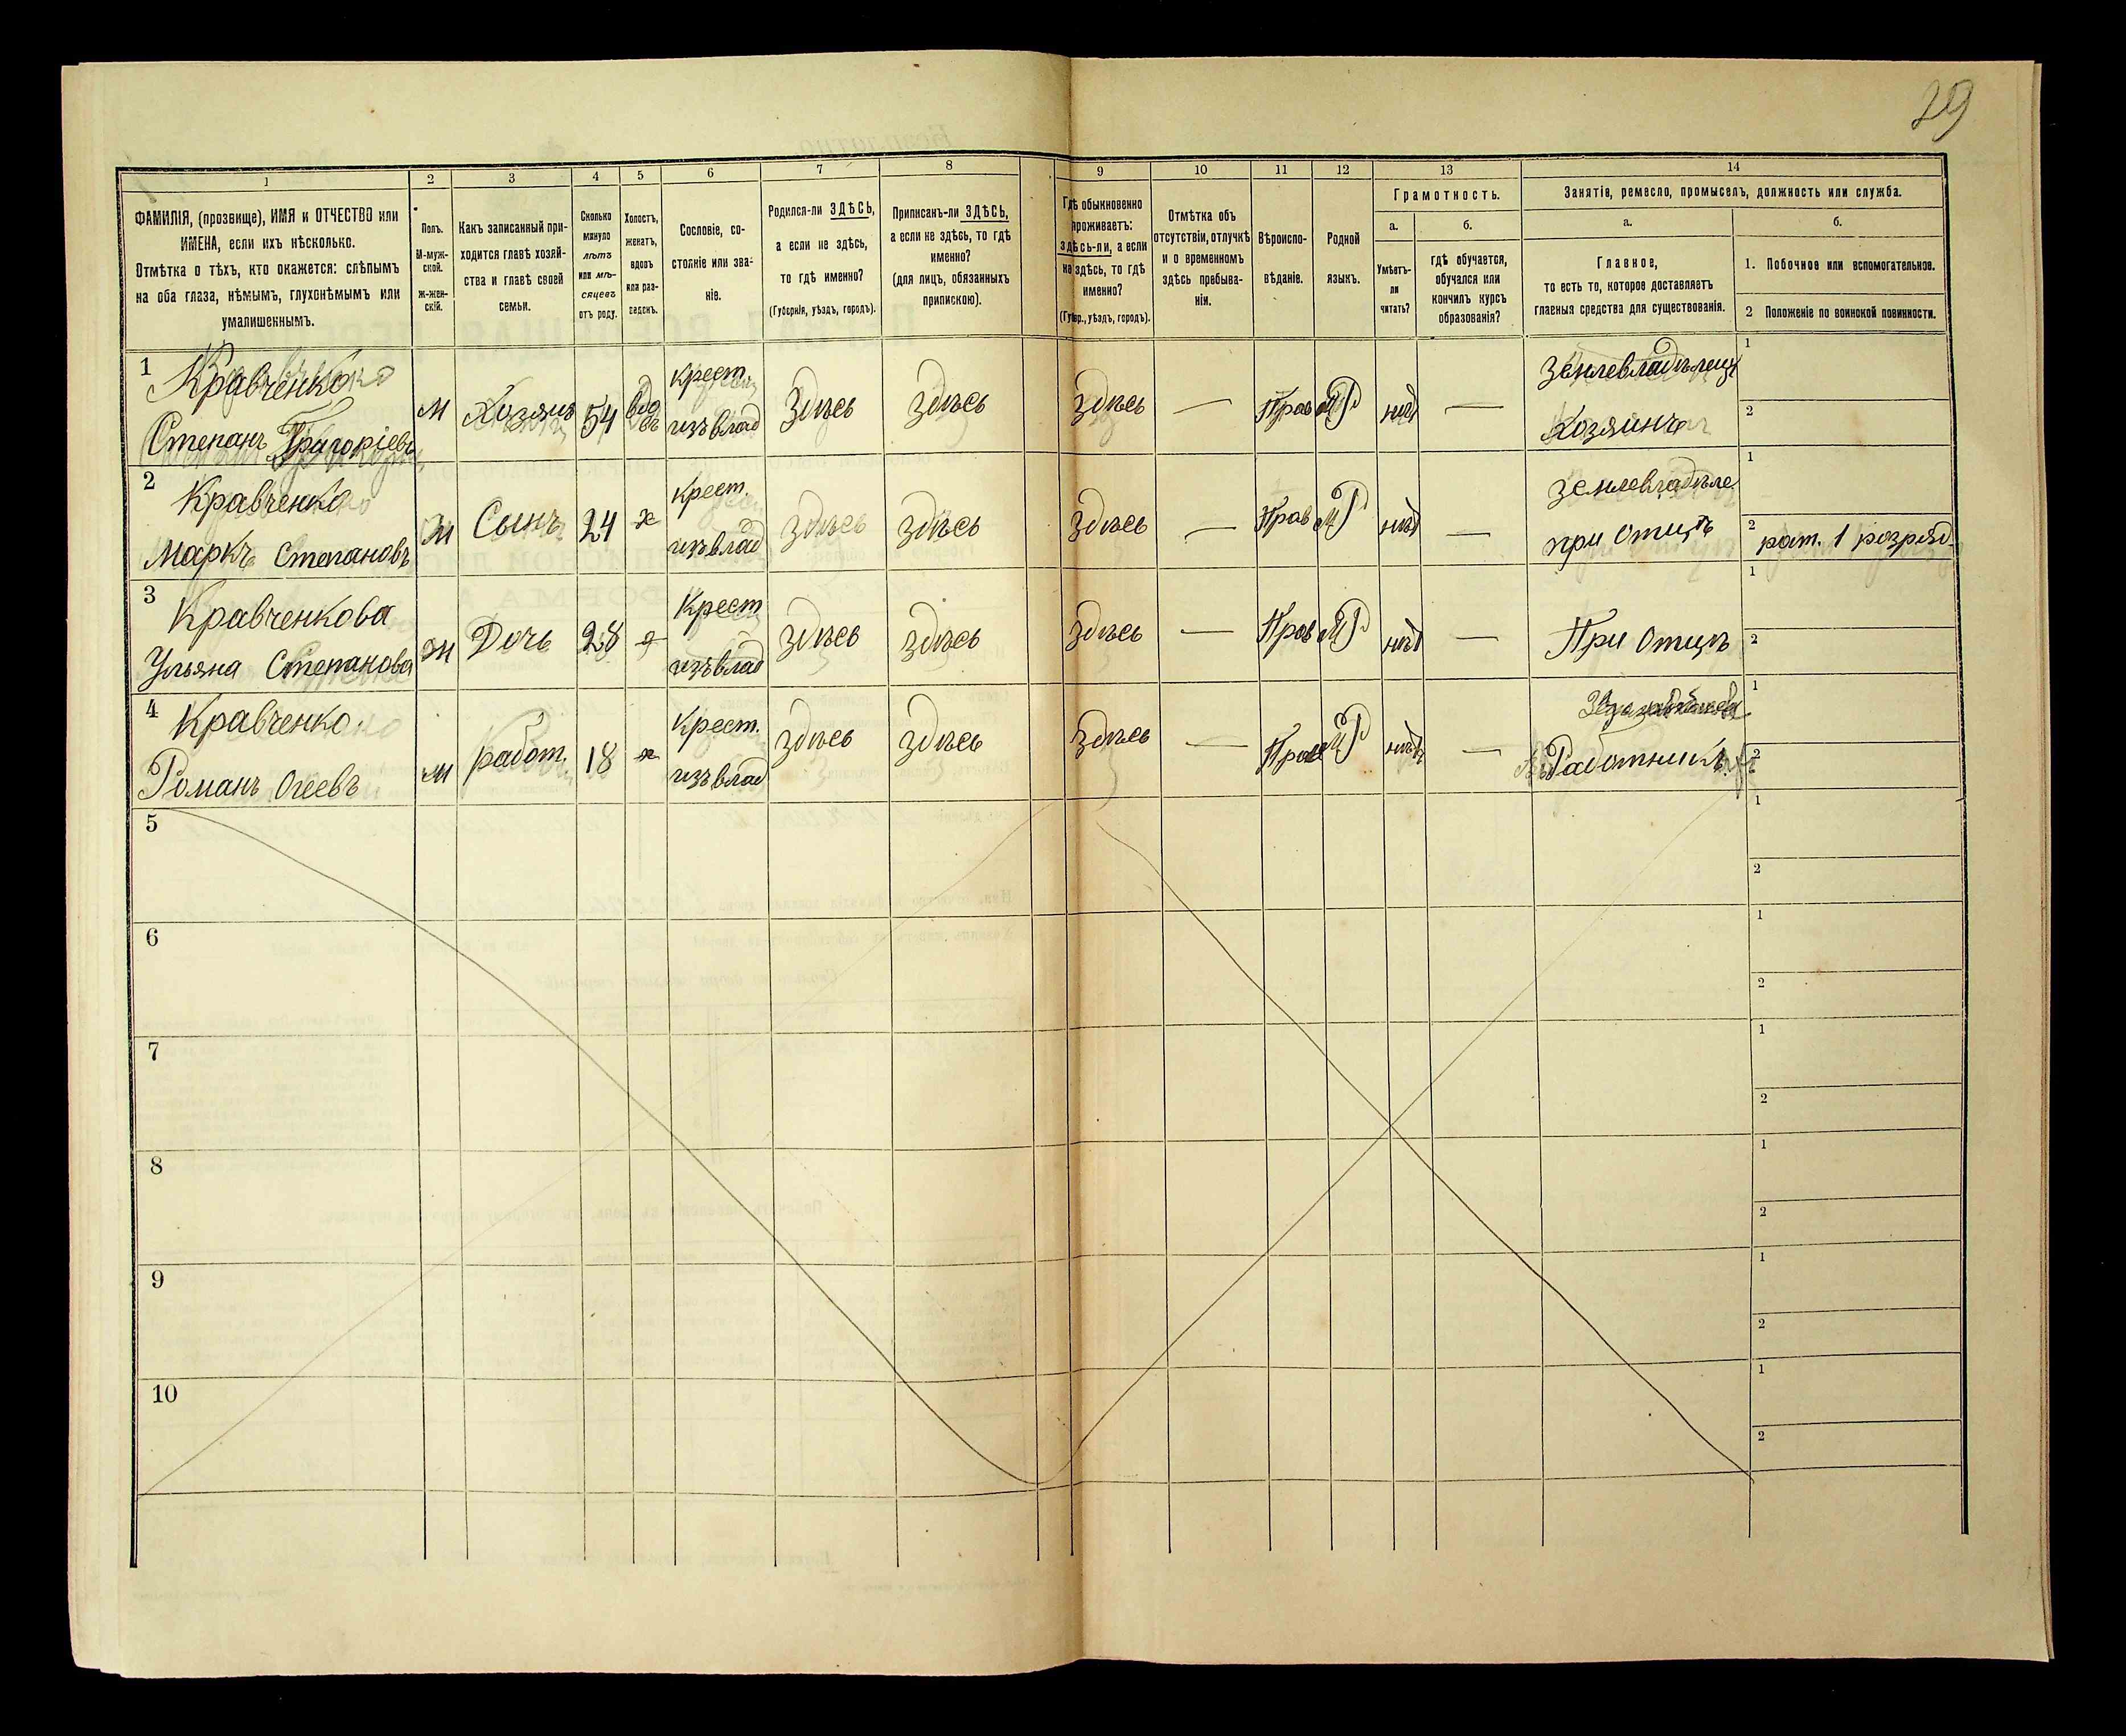 29
1 2 3 4 5 6 7 8 9 10 11 12 13 14
ФАМИЛІЯ, (прозвище), ИМЯ и ОТЧЕСТВО или
ИМЕНА, если ихъ нѣсколько.
Отмѣтка о тѣхъ, кто окажется: слѣпымъ
на оба глаза, нѣмымъ, глухонѣмымъ или
умалишеннымъ.
Полъ.
М-муж-
ской.
Ж-жен-
скій.
Какъ записанный при-
ходится главѣ хозяй-
ства и главѣ своей
семьи.
Сколько
минуло
лѣтъ
или мѣ-
сяцевъ
отъ роду.
Холостъ,
женатъ,
вдовъ
или раз-
веденъ.
Сословіе, со-
стояніе или зва-
ніе.
Родился-ли ЗДѢСЬ,
а если не здѣсь,
то гдѣ именно?
(Губернія, уѣздъ, городъ).
Приписанъ-ли ЗДѢСЬ,
а если не здѣсь, то гдѣ
именно?
(для лицъ, обязанныхъ
припискою).
Гдѣ обыкновенно
проживаетъ:
здѣсь-ли, а если
не здѣсь, то гдѣ
именно?
(Губер., уѣздъ, городъ).
Отмѣтка объ
отсутствіи, отлучкѣ
и о временномъ
здѣсь пребыва-
ніи.
Вѣроиспо-
вѣданіе.
Родной
языкъ.
Грамотность.
а.
Умѣетъ-
ли
читать?
б.
гдѣ обучается,
обучался или
кончилъ курсъ
образованія?
Занятіе, ремесло, промыселъ, должность или служба.
а.
Главное,
то есть то, которое доставляетъ
главныя средства для существованія.
б.
1. Побочное или вспомогательное.
2 Положеніе по воинской повинности.
1 Кравченко
Степанъ Григоріевъ
М Хозяинъ 54 вдо
въ
крест.
изъ влад
Здѣсь Здѣсь Здѣсь — Прав МР нѣт —
Землевладѣлецъ
Хозяинъ
1
2
2 Кравченко
Маркъ Степановъ
М Сынъ 24 х
крест.
изъ влад
Здѣсь Здѣсь Здѣсь — Прав МР нѣт —
землевладѣле
при Отцѣ
1
2 рат. 1 розряд
3 Кравченкова
Ульяна Степанова
Ж Дочь 28
Крест
изъ влад
Здѣсь Здѣсь Здѣсь — Прав МР нѣт —
При Отцѣ
1
2
4 Кравченко
Романъ
М работ. 18 х
Крест.
изъ влад
Здѣсь Здѣсь Здѣсь — Прав МР нѣт —
Работникъ
1
2
5
1
2
6
1
2
7
1
2
8
1
2
9
1
2
10
1
2